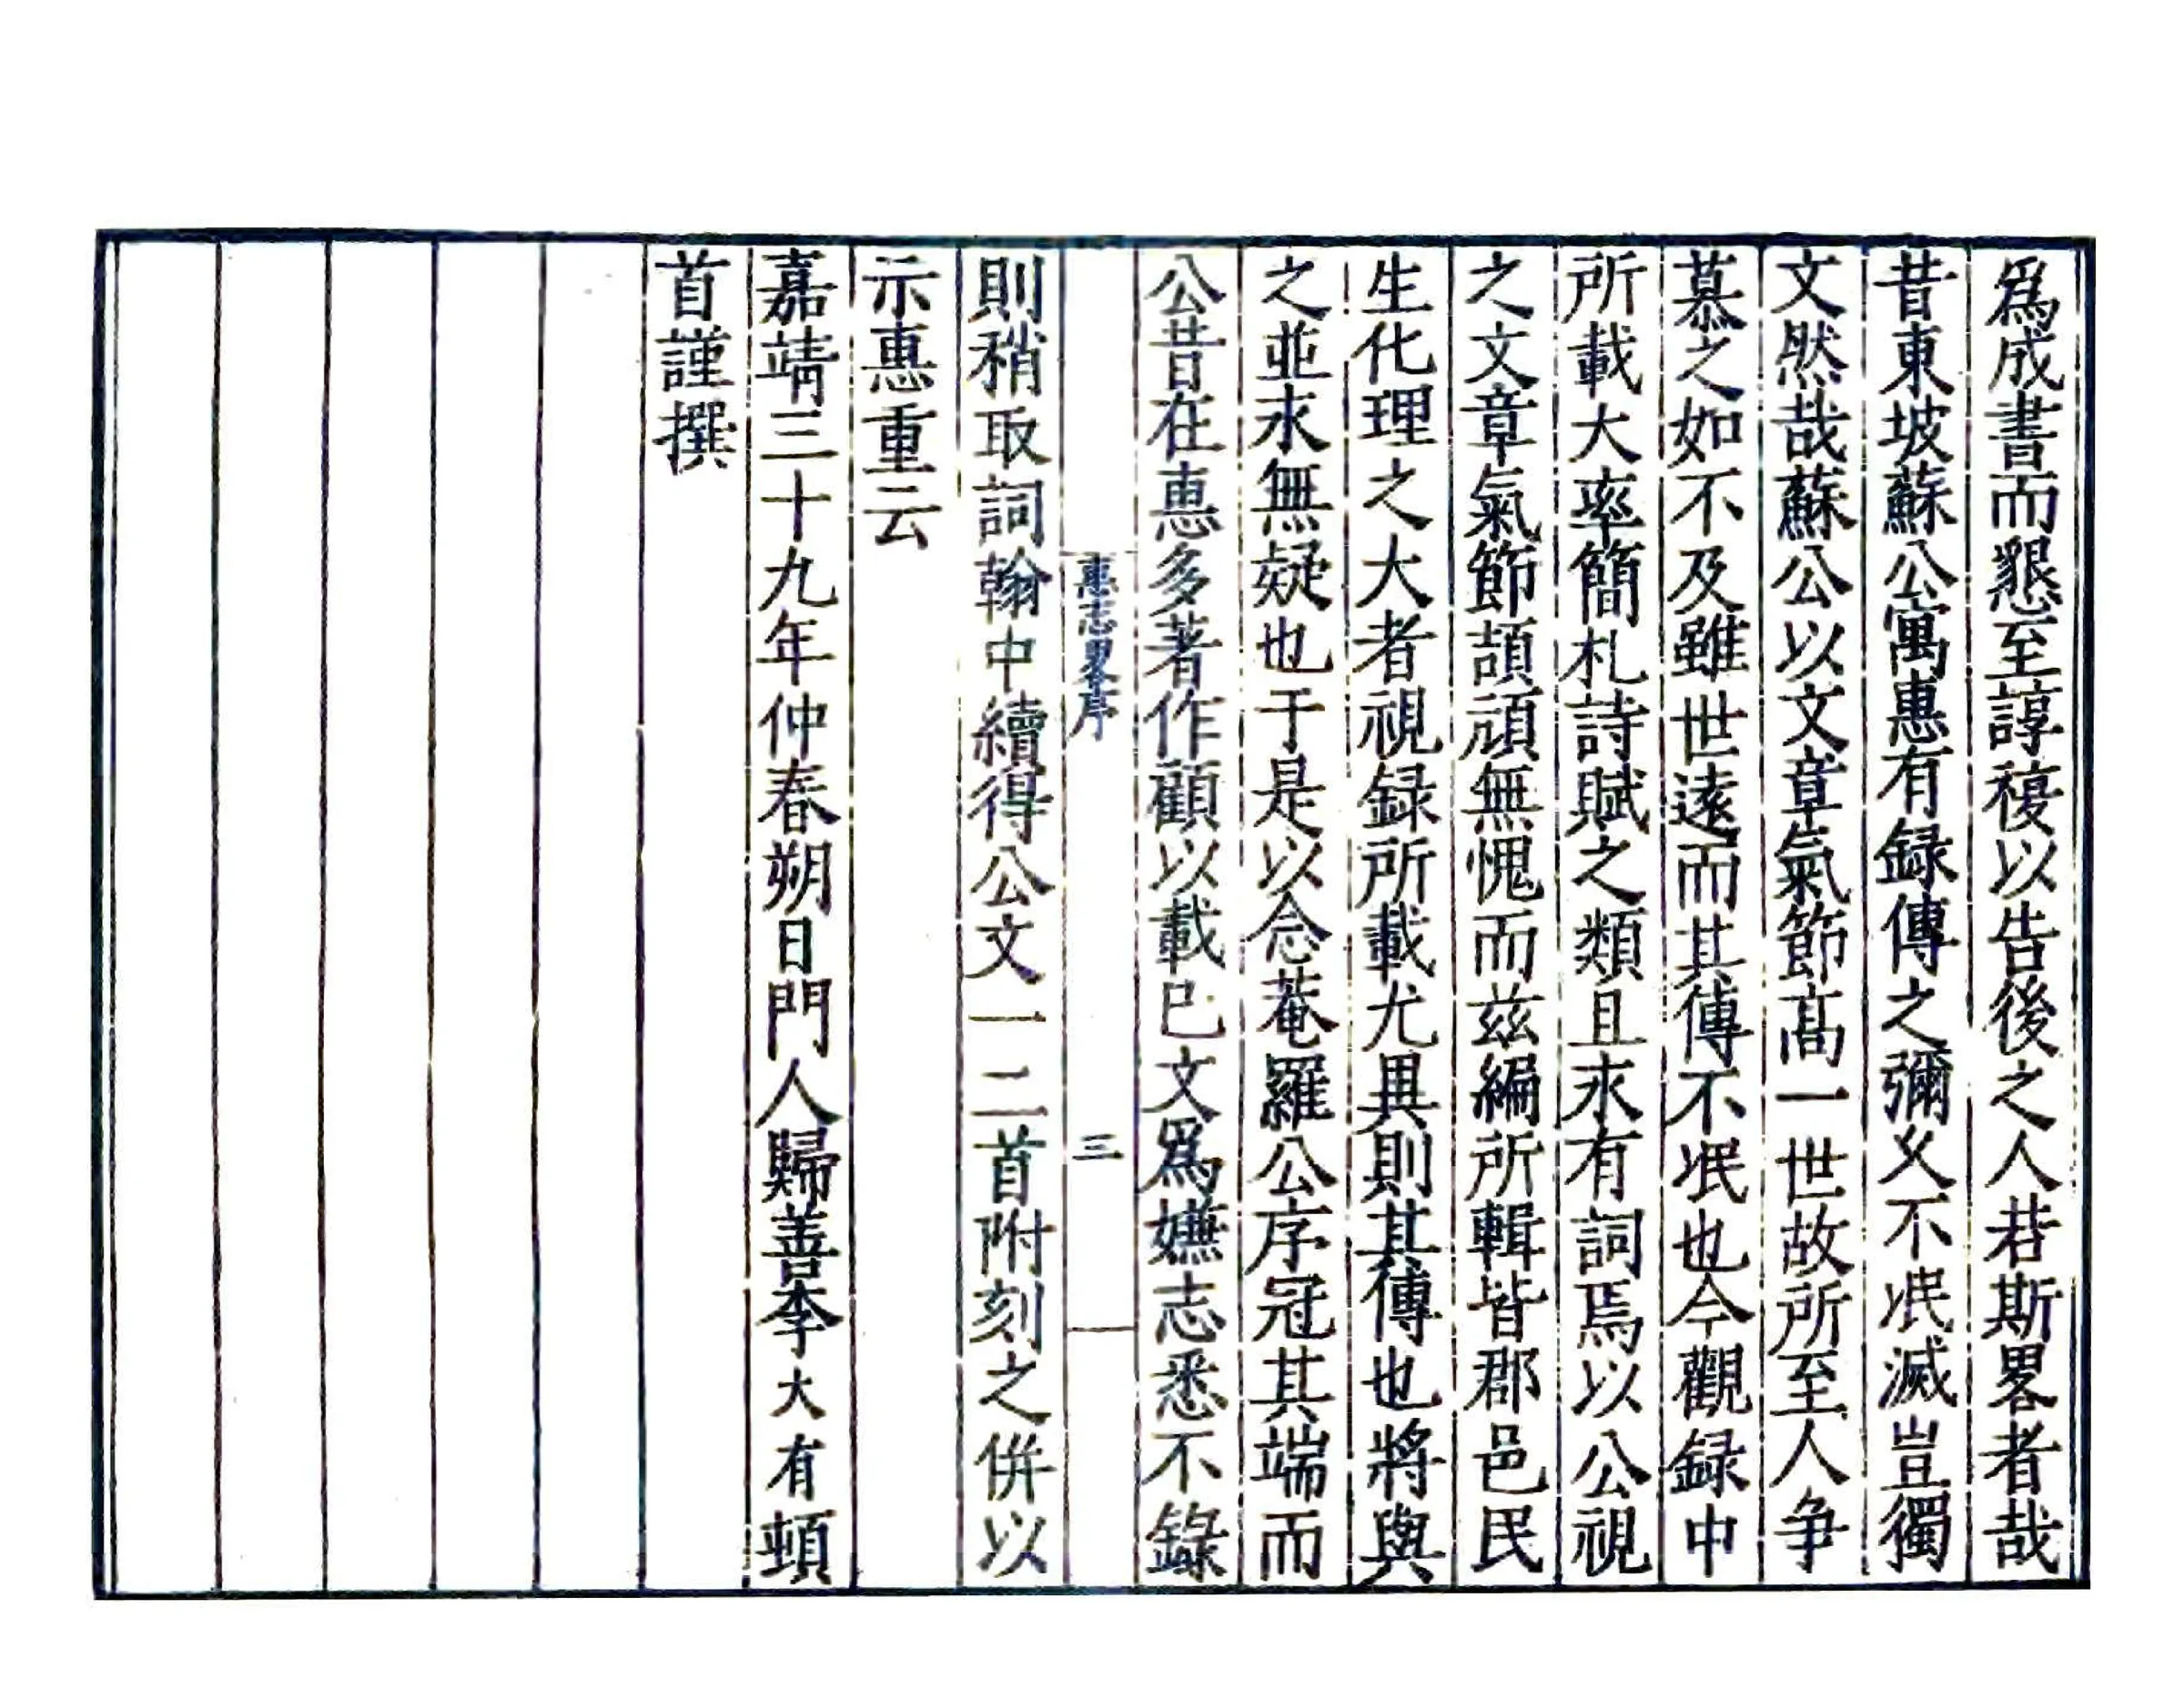 爲成書而懇至諄複以告後之人若斯畧者哉
昔東坡蘇公寓惠有録傳之彌乆不泯滅豈獨
文然哉蘇公以文章氣節髙一世故所至人争
慕之如不及雖世遠而其傳不泯也今觀録中
所載大率簡札詩賦之類且未有詞焉以公視
之文章氣節頡頏無愧而兹編所輯皆郡邑民
生化理之大者視録所載尤異則其傳也將與
之並永無疑也于是以念菴羅公序冠其端而
公昔在惠多著作顧以載已文爲嫌志悉不錄
惠志畧序
三
則稍取詞翰中續得公文一二首附刻之併以
示惠重云
嘉靖三十九年仲春朔日門人歸善李大有頓
首謹撰